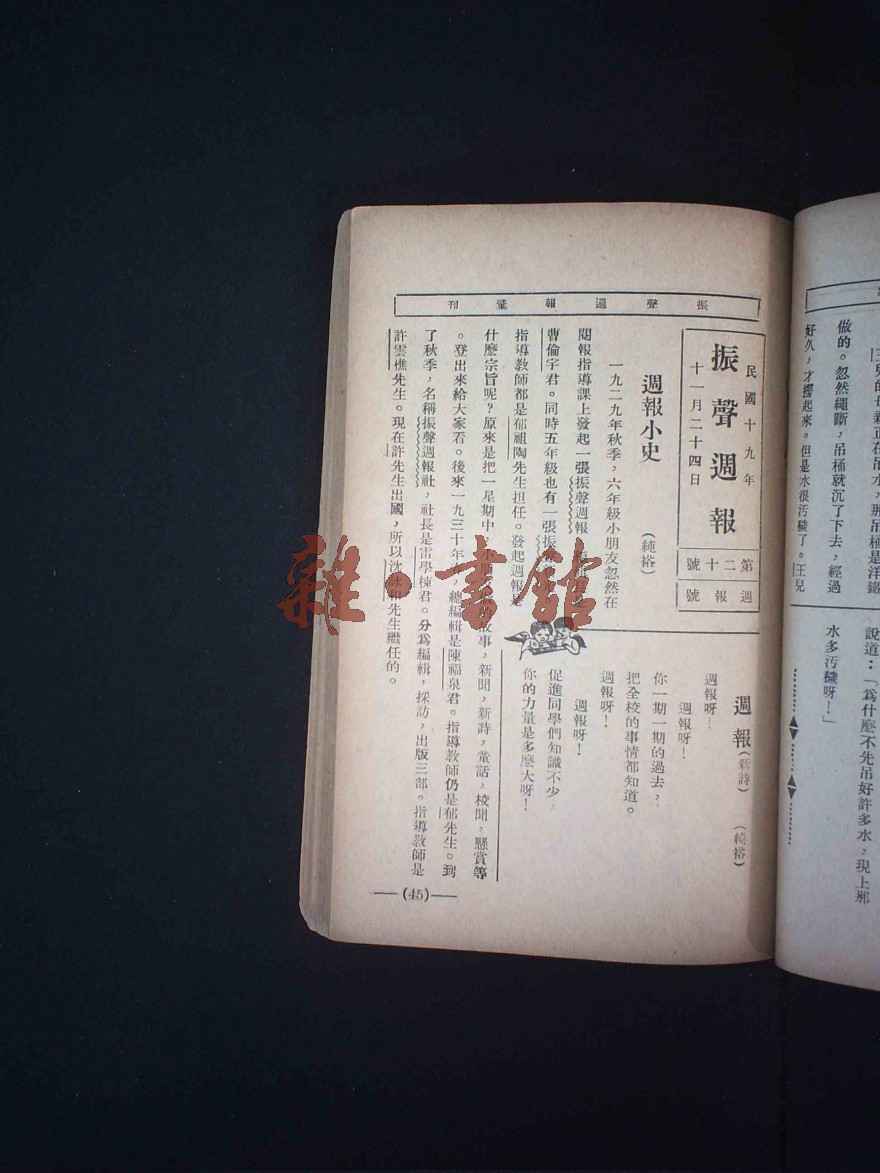 做的。忽然繩斷，吊桶就沉了下去，經過
好久，才撈起來。但是水很污穢了。王兒
說道：「爲什麼不先吊好許多水，現上那
水多污穢呀！」
振聲週報彙刊
民國十九年
振聲週報
十一月二十四日
第二十號
週報號
週報(新詩) (純裕)
週報呀！
週報呀！
你一期一期的過去，
把全校的事情都知道。
週報呀！
週報呀！
促進同學們知識不少，
你的力量是多麼大呀！
週報小史 (純裕)
一九二九年秋季，六年級小朋友忽然在
閱報指導課上發起一張振聲週報，
曹倫宇君。同時五年級也有一張振
指導教師都是郁祖陶先生担任。發起週報是
什麼宗旨呢？原來是把一星期中，小朋友的故事，新聞，新詩，童話，校聞，懸賞等
。登出來給大家看。後來一九三十年春，總編輯是陳福泉君。指導教師仍是郁先生。到
了秋季，名稱振聲週報社，社長是雷學棟君。分爲編輯，採訪，出版三部。指導教師是
許雲樵先生。現在許先生出國，所以沈詠和先生繼任的。
(45)
雜·書館